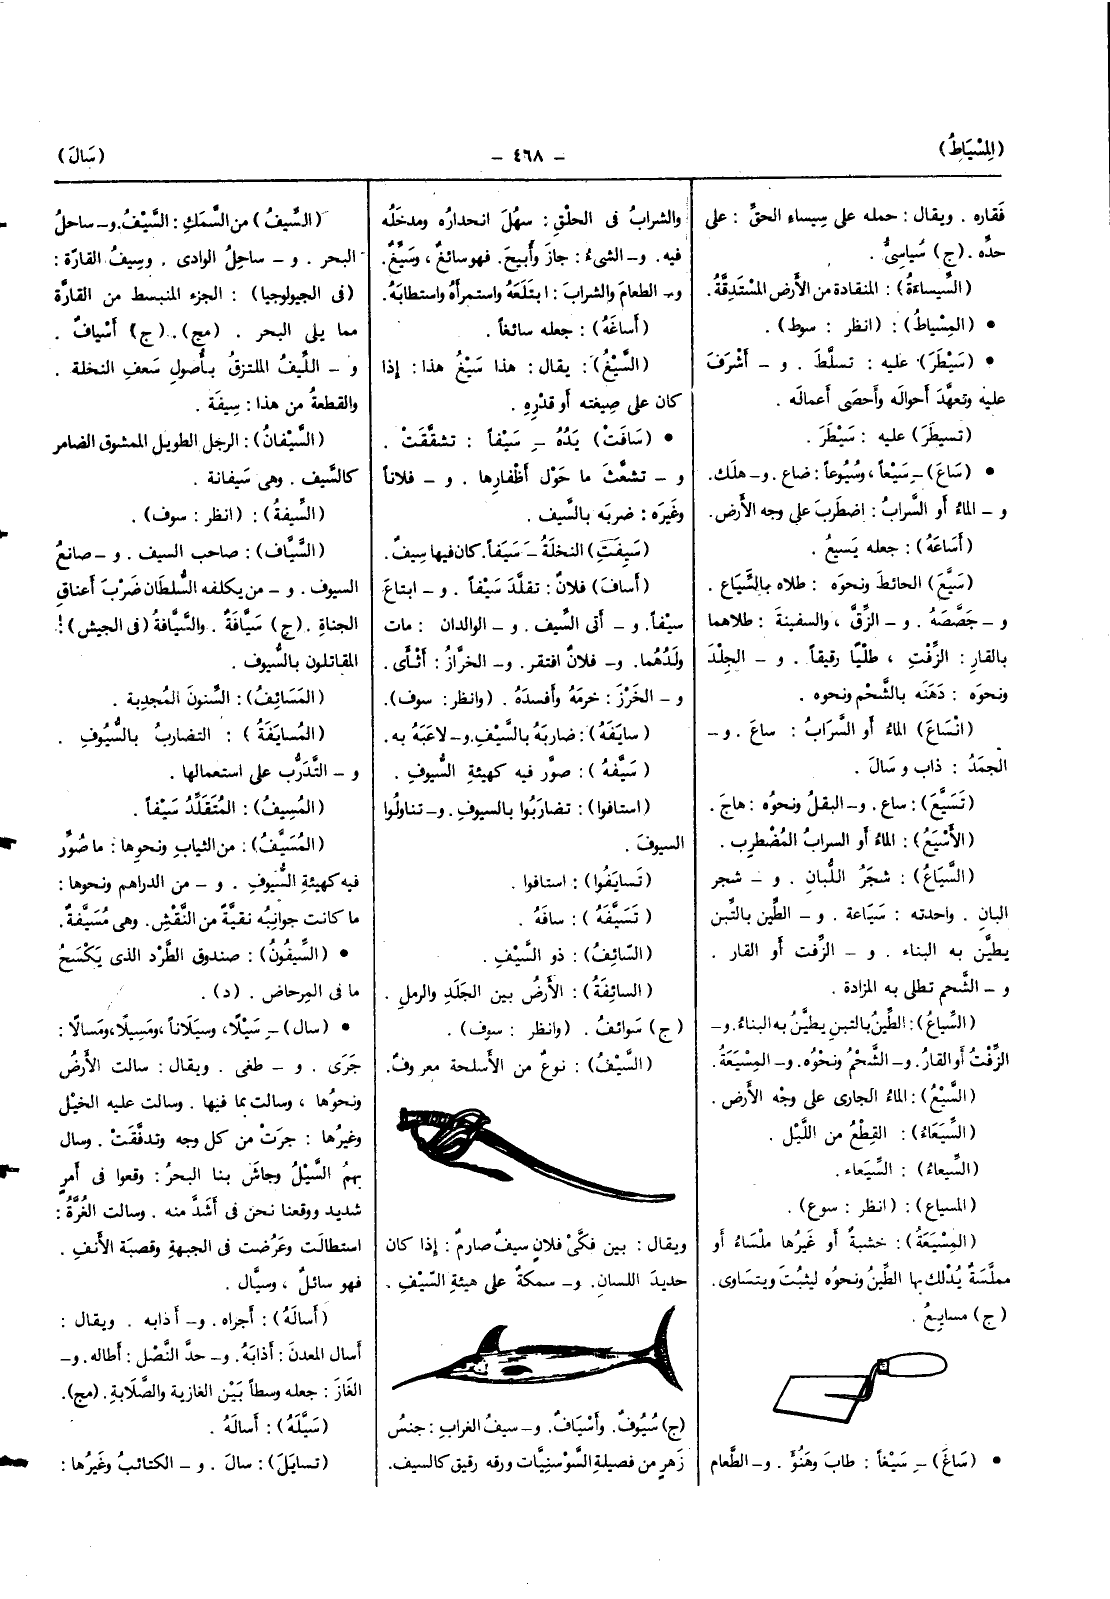 (المِسْيَاطُ)
- ٤٦٨ -
(سَالَ)
فَقاره . ويقال : حمله على سِيساء الحقِّ : على
حدِّه . (ج) سُياسِىُّ .
(السِّيساءَةُ) : المنقادة من الأَرض المسْتَدِقَّةُ .
• (المِسْياطُ) : (انظر : سوط) .
• (سَيْطَرَ) عليه : تسلَّطَ . و - أَشْرَفَ
عليه وتعهَّدَ أحوالَه وأَحصَى أعمالَه .
(تسيطَرَ) عليه : سَيْطَرَ .
• (سَاعَ) ـِ سَيْعاً ، وسُيُوعاً : ضاع . و- هلَك .
و - الماءُ أو السَّرابُ : اضطَربَ على وجه الأَرض .
(أَسَاعَهُ) : جعله يَسيعُ .
(سَيَّعَ) الحائطَ ونحوَه : طلاه بالسَّيَاع .
و - جَصَّصَهُ . و - الزِّقَّ ، والسفينةَ : طلاهما
بالقارِ : الزِّفْتِ ، طلْيًا رقيقاً . و - الجِلْدَ
ونحوَه : دَهَنَه بالشَّحْم ونحوه .
(انْسَاعَ) الماءُ أو السَّرَابُ : ساعَ . و -
الجمَدُ : ذاب و سَالَ .
(تَسَيَّعَ) : ساع . و- البقلُ ونحوُه : هاجَ .
(الأَسْيَعُ) : الماءُ أو السرابُ المُضْطرِب .
(السَّيَاعُ) : شجَرُ اللُّبانِ . و - شجر
البانِ . واحدته : سَيَاعة . و - الطِّين بالتِّبن
يطيَّن به البناء . و - الزِّفت أو القار .
و - الشَّحم تطلى به المزادة .
(السِّياعُ) : الطِّينُ بالتبنِ يطيَّنُ به البناءُ . و -
الزِّفْتُ أو القارُ . و- الشَّحْمُ ونحْوُه . و- المِسْيَعَةُ .
(السَّيْعُ) : الماءُ الجارى على وجْه الأَرض .
(السِّيَعَاءُ) : القِطْعُ من اللَّيْل .
(السِّيعاءُ) : السِّيَعاء .
(المسياع) : (انظر : سوع) .
(المِسْيَعَةُ) : خشبةٌ أو غَيرُها ملْسَاءُ أو
مملَّسَةٌ يُدْلك بها الطِّينُ ونحوُه ليثبُتَ ويتسَاوى .
(ج) مسايعُ .
• (سَاغَ) ـِ سَيْغاً : طابَ وهَنُؤَ . و- الطَّعام
والشرابُ فى الحلْقِ : سهُلَ انحدارُه ومدخَلُه
فيه . و- الشىءُ : جازَ وأُبيحَ . فهو سائغٌ ، وسَيِّغٌ .
و- الطعامَ والشرابَ : ابتلَعَهُ واستمرأَهُ واستطابَهُ .
(أَساغَهُ) : جعله سائغاً .
(السَّيْغُ) : يقال : هذا سَيْغُ هذا : إذا
كان على صِيغته أو قدْرِه .
• (سَافَتْ) يَدُهُ ـِ سَيْفاً : تشقَّقَتْ .
و - تشعَّثَ ما حَوْل أظْفارِها . و - فلاناً
وغَيرَه : ضربَه بالسَّيف .
(سَيِفَتِ) النخلَةُ ـَ سَيَفاً : كان فيها سِيفٌ .
(أَسافَ) فلانٌ : تقلَّدَ سَيْفاً . و - ابتاعَ
سيْفاً . و - أَتَى السِّيف . و - الوالدان : مات
ولَدُهُما . و- فلانٌ افتقر . و- الخرَّازُ : أَثْأَى .
و - الخَرْزَ : خرمَهُ وأَفسدَهُ . (وانظر : سوف) .
(سايَفَهُ) : ضاربَهُ بالسَّيْفِ . و- لاعَبَهُ به .
(سَيَّفهُ) : صوَّر فيه كهيئةِ السُّيوفِ .
(استافوا) : تضارَبُوا بالسيوفِ . و- تناولُوا
السيوفَ .
(تَسايَفُوا) : استافوا .
(تَسَيَّفَهُ) : سافَهُ .
(السّائِفُ) : ذو السَّيْفِ .
(السائِفَةُ) : الأَرضُ بين الجَلَدِ والرملِ .
(ج) سَوائفُ . (وانظر : سوف) .
(السَّيْفُ) : نوعٌ من الأَسلحة معروفٌ .
ويقال : بين فكَّىْ فلانٍ سيفٌ صارمٌ : إذا كان
حديدَ اللسانِ . و- سمكةٌ على هيئةِ السّيْفِ .
(ج) سُيُوفٌ . وأَسْيَافٌ . و- سيفُ الغرابِ : جنسُ
زَهرٍ من فصيلةِ السَّوْسنِيَّات ورقه رقيق كالسيف .
(السِّيفُ) من السَّمَكِ : السَّيْفُ . و- ساحلُ
البحر . و - ساحِلُ الوادى . وسِيفُ القارَة :
(فى الجيولوجيا) : الجزء المنبسط من القارَّة
مما يلى البحر . (مج) . (ج) أَسْيافٌ .
و - اللِّيفُ الملتزقُ بأُصولِ سَعفِ النخلة .
والقطعةُ من هذا : سِيفَة .
(السَّيْفانُ) : الرجل الطويل الممشوق الضامر
كالسَّيف . وهى سَيفانة .
(السِّيفةُ) : (انظر : سوف) .
(السَّيَّاف) : صاحب السيف . و - صانعُ
السيوف . و - من يكلفه السُّلطان ضَرْبَ أعناقِ
الجناةِ . (ج) سَيَّافَةٌ . والسَّيَّافةُ (فى الجيش) :
المقاتلون بالسُّيوف .
(المَسَائِفُ) : السِّنونَ المُجدِبة .
(المُسايَفَةُ) : التضاربُ بالسُّيُوفِ .
و - التَّدَرُّب على استعمالها .
(المُسِيفُ) : المُتَقَلِّدُ سَيْفاً .
(المُسَيَّفُ) : من الثيابِ ونحوِها : ما صُوِّر
فيه كهيئةِ السُّيوفِ . و - من الدراهم ونحوها :
ما كانت جوانِبُه نقيَّةً من النَّقْشِ . وهى مُسَيَّفةٌ .
• (السِّيفُونُ) : صندوق الطَّرْد الذى يَكْسَحُ
ما فى المِرحاض . (د) .
• (سال) ـِ سَيْلًا ، وسيَلَاناً ، ومَسِيلًا ، ومَسالًا :
جَرَى . و - طغى . ويقال : سالت الأَرضُ
ونحوُها ، وسالت بما فيها . وسالت عليه الخيْل
وغيرُها : جرَتْ من كل وجه وتدفَّقَتْ . وسال
بهمُ السَّيْلُ وجاشَ بنا البحرُ : وقعوا فى أَمرٍ
شديد ووقعنا نحن فى أَشَدَّ منه . وسالت الغُرَّةُ :
استطالَت وعَرُضت فى الجبهةِ وقصبَة الأَنفِ .
فهو سائلٌ ، وسيَّال .
(أَسالَهُ) : أَجراه . و- أذابه . ويقال :
أَسال المعدنَ : أَذابَهُ . و- حدَّ النَّصْل : أَطاله . و-
الغازَ : جعله وسطاً بَيْن الغازية والصَّلَابةِ . (مج) .
(سَيَّلَهُ) : أَسالَهُ .
(تسايَلَ) : سالَ . و - الكتائبُ وغَيرُها :